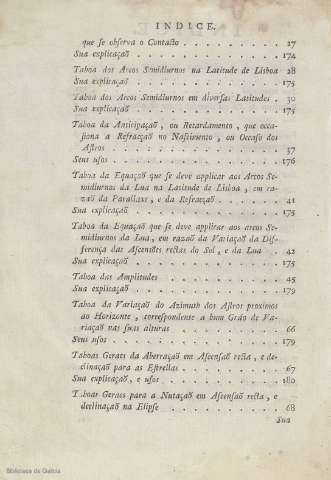 INDICE.
que se observa o Contacto . . . . . . . . . 27
Sua explicaçaõ . . . . . . . . . . . . . 174
Taboa dos Arcos Semidiurnos na Latitude de Lisboa 28
Sua explicaçaõ . . . . . . . . . . . . . 175
Taboa dos Arcos Semidiurnos em diversas Latitudes . 30
Sua explicaçaõ . . . . . . . . . . . . . 175
Taboa da Anticipaçaõ, ou Retardamento, que occa-
siona a Refracçaõ no Nascimento, ou Occaso dos
Astros . . . . . . . . . . . . . . . 37
Seus usos . . . . . . . . . . . . . . . 176
Taboa da Equaçaõ que se deve applicar aos Arcos Se-
midiurnos da Lua na Latitude de Lisboa, em ra-
zaõ da Parallaxe, e da Refracçaõ . . . . . . 41
Sua explicaçaõ . . . . . . . . . . . . . 175
Taboa da Equaçaõ que se deve applicar aos arcos Se-
midiurnos da Lua, em razaõ da Variaçaõ da Dif-
ferença das Ascensões rectas do Sol, e da Lua . . 42
Sua explicaçaõ . . . . . . . . . . . . . 175
Taboa das Amplitudes . . . . . . . . . . 45
Sua explicaçaõ . . . . . . . . . . . . . 179
Taboa da Variaçaõ do Azimuth dos Astros proximos
ao Horizonte, correspondente a hum Gráo de Va-
riaçaõ nas suas alturas . . . . . . . . . . 66
Seus usos . . . . . . . . . . . . . . . 179
Taboas Geraes da Aberraçaõ em Ascensaõ recta, e de-
clinaçaõ para as Estrellas . . . . . . . . . 67
Sua explicaçaõ, e usos . . . . . . . . . . 180
Taboas Geraes para a Nutaçaõ em Ascensaõ recta, e
declinaçaõ na Elipse . . . . . . . . . . . 68
Sua
Biblioteca de Galicia